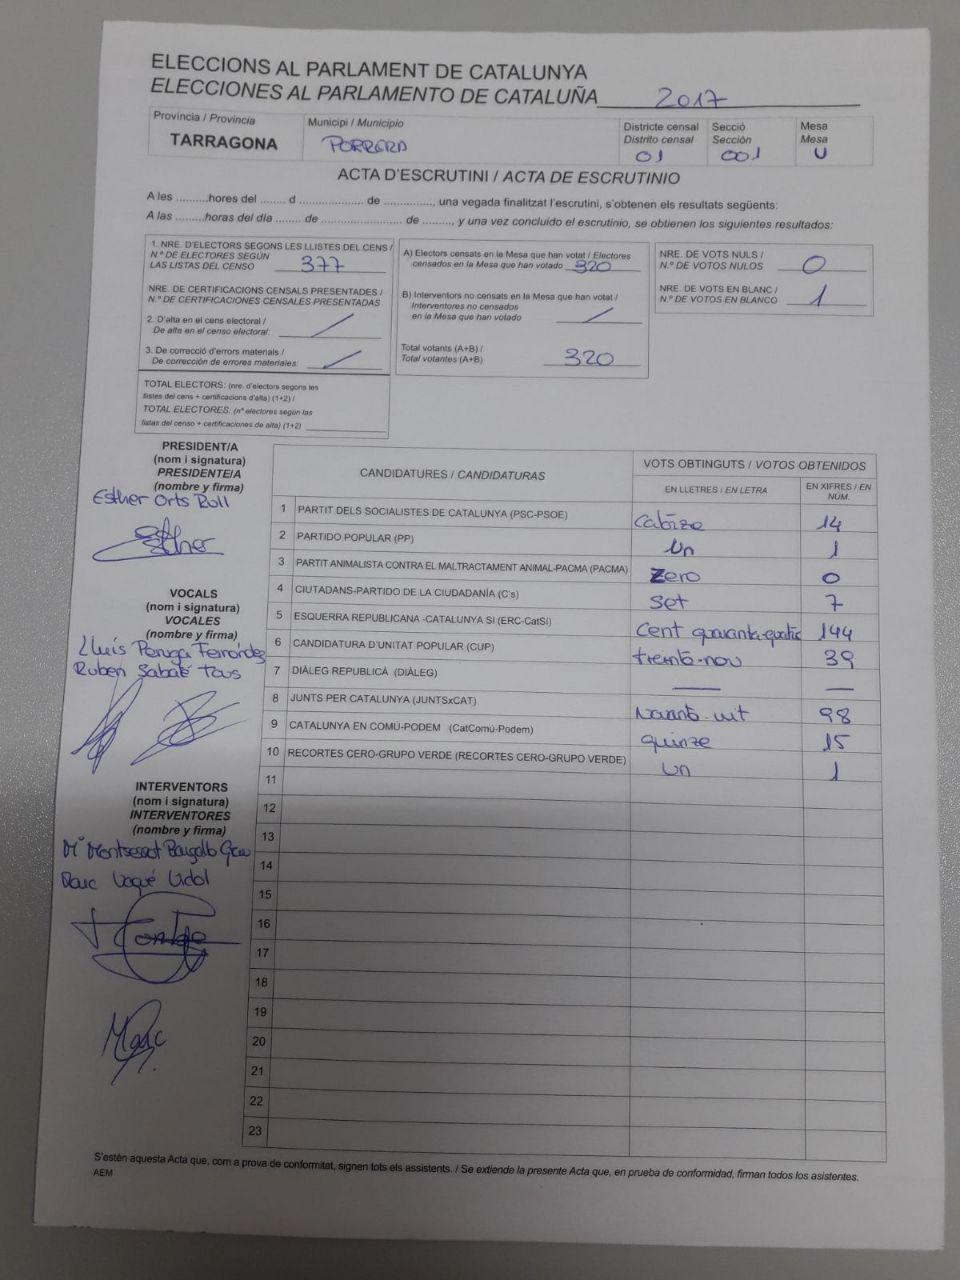 ELECCIONS AL PARLAMENT DE CATALUNYA
ELECCIONES AL PARLAMENTO DE CATALUÑA 2017
Província / Provincia
TARRAGONA
Municipi / Municipio
PORRERA
Districte censal
Distrito censal
01
Secció
Sección
001
Mesa
Mesa
U
ACTA D'ESCRUTINI / ACTA DE ESCRUTINIO
A les ..........hores del ........ d .................... de ..............., una vegada finalitzat l'escrutini, s'obtenen els resultats següents:
A las ..........horas del día ........ de .......................... de .........., y una vez concluido el escrutinio, se obtienen los siguientes resultados:
1. NRE. D'ELECTORS SEGONS LES LLISTES DEL CENS /
N.º DE ELECTORES SEGÚN
LAS LISTAS DEL CENSO 377
NRE. DE CERTIFICACIONS CENSALS PRESENTADES /
N.º DE CERTIFICACIONES CENSALES PRESENTADAS
2. D'alta en el cens electoral /
De alta en el censo electoral: /
3. De correcció d'errors materials /
De corrección de errores materiales: /
TOTAL ELECTORS: (nre. d'electors segons les
llistes del cens + certificacions d'alta) (1+2) /
TOTAL ELECTORES: (nº electores según las
listas del censo + certificaciones de alta) (1+2)
A) Electors censats en la Mesa que han votat / Electores
censados en la Mesa que han votado 320
B) Interventors no censats en la Mesa que han votat /
Interventores no censados
en la Mesa que han votado /
Total votants (A+B) /
Total votantes (A+B) 320
NRE. DE VOTS NULS /
N.º DE VOTOS NULOS 0
NRE. DE VOTS EN BLANC /
N.º DE VOTOS EN BLANCO 1
PRESIDENT/A
(nom i signatura)
PRESIDENTE/A
(nombre y firma)
Esther Orts Rull
Esther
VOCALS
(nom i signatura)
VOCALES
(nombre y firma)
Lluís Fernández
Ruben Sabaté Tous
INTERVENTORS
(nom i signatura)
INTERVENTORES
(nombre y firma)
Mª Montserrat
Marc Vaqué Vidal
Marc
CANDIDATURES / CANDIDATURAS
VOTS OBTINGUTS / VOTOS OBTENIDOS
EN LLETRES / EN LETRA
EN XIFRES / EN NÚM.
1 PARTIT DELS SOCIALISTES DE CATALUNYA (PSC-PSOE) Catorze 14
2 PARTIDO POPULAR (PP) Un 1
3 PARTIT ANIMALISTA CONTRA EL MALTRACTAMENT ANIMAL-PACMA (PACMA) Zero 0
4 CIUTADANS-PARTIDO DE LA CIUDADANÍA (C's) Set 7
5 ESQUERRA REPUBLICANA -CATALUNYA SI (ERC-CatSí) Cent quaranta-quatre 144
6 CANDIDATURA D'UNITAT POPULAR (CUP) trenta-nou 39
7 DIÀLEG REPUBLICÀ (DIÀLEG) — —
8 JUNTS PER CATALUNYA (JUNTSxCAT) Noranta-vuit 98
9 CATALUNYA EN COMÚ-PODEM (CatComú-Podem) quinze 15
10 RECORTES CERO-GRUPO VERDE (RECORTES CERO-GRUPO VERDE) Un 1
11
12
13
14
15
16
17
18
19
20
21
22
23
S'estén aquesta Acta que, com a prova de conformitat, signen tots els assistents. / Se extiende la presente Acta que, en prueba de conformidad, firman todos los asistentes.
AEM